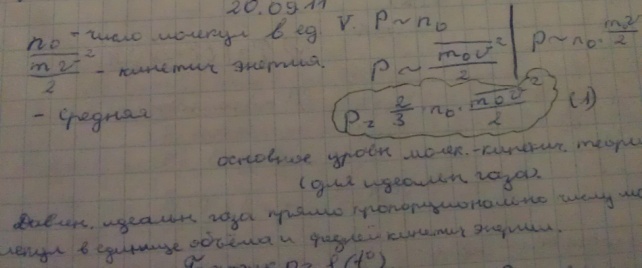 20.09.11
n₀ - число молекул в ед V. P ~ n₀
m̅v̅²/2 - кинетич энергия. P ~ m₀v²/2 | P ~ n₀ · mv²/2
- средняя P = 2/3 · n₀ · m₀v²/2 (1)
основное уравн молек.-кинетич. теории
(для идеальн газа).
Давлен. идеальн газа прямо пропорционально числу мо
лекул в единице объёма и средней кинетич энергии.